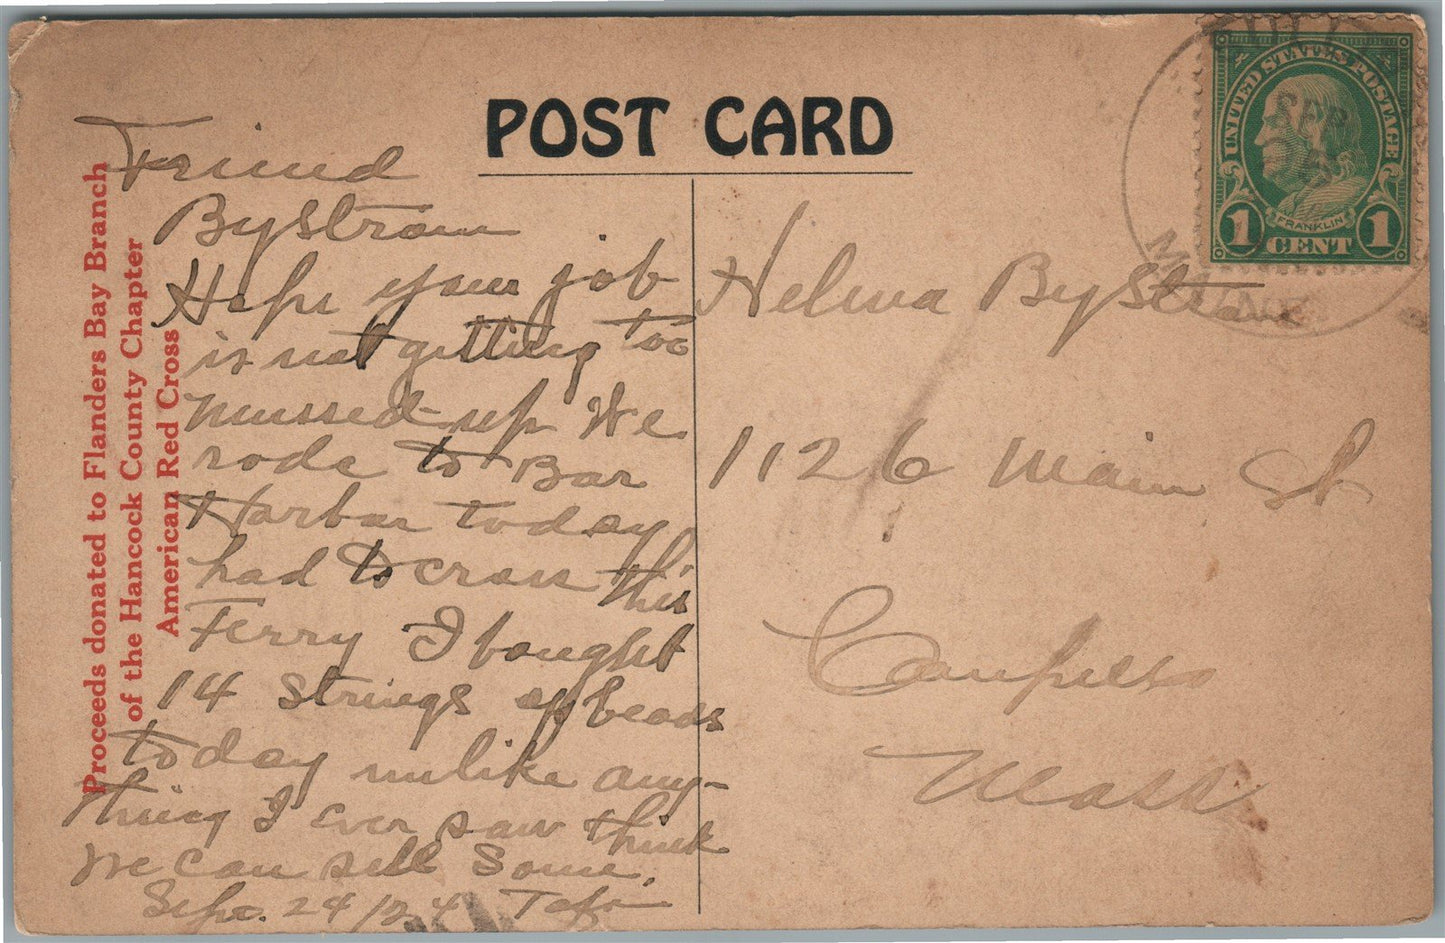 POST CARD
Proceeds donated to Flanders Bay Branch
of the Hancock County Chapter
American Red Cross
UNITED STATES POSTAGE
FRANKLIN
1 CENT 1
SEP
MAINE
Friend
Bystrom
Hope your job
is not getting too
mussed up We
rode to Bar
Harbor today
had to cross this
Ferry I bought
14 Strings of beads
today unlike any-
thing I ever saw think
We can sell Some.
Sept. 24/24
Helma Bystrom
1126 Main St
Campello
Mass